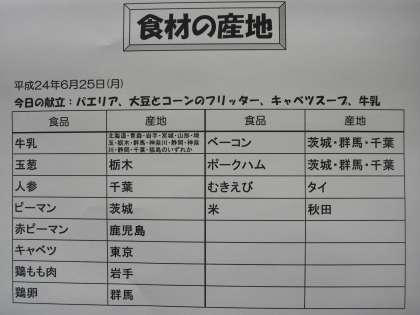 食材の産地
平成24年6月25日(月)
今日の献立：パエリア、大豆とコーンのフリッター、キャベツスープ、牛乳
食品 産地 食品 産地
牛乳 北海道・青森・岩手・宮城・山形・埼玉・栃木・群馬・神奈川・静岡・神奈川・静岡・千葉・福島のいずれか ベーコン 茨城・群馬・千葉
玉葱 栃木 ポークハム 茨城・群馬・千葉
人参 千葉 むきえび タイ
ピーマン 茨城 米 秋田
赤ピーマン 鹿児島
キャベツ 東京
鶏もも肉 岩手
鶏卵 群馬